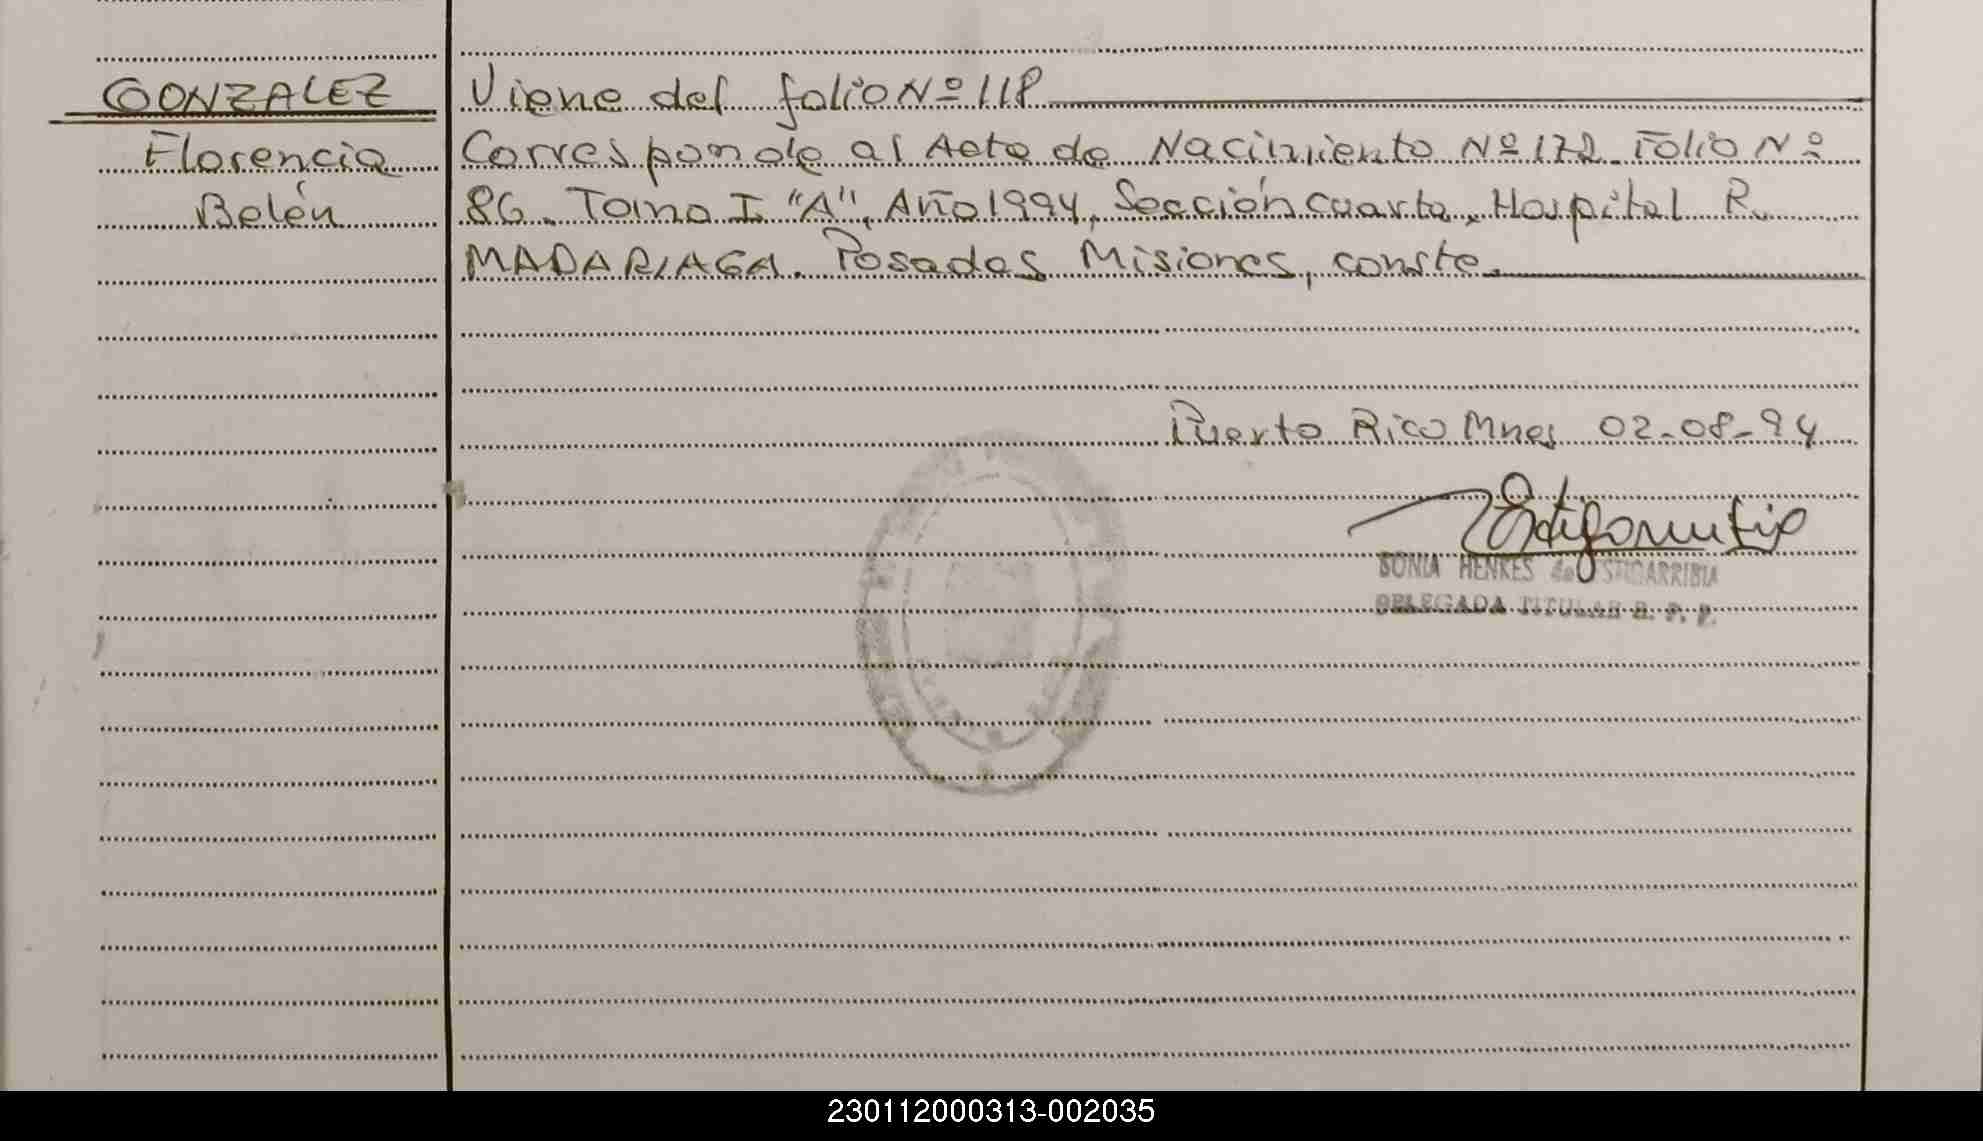 GONZALEZ
Florencia
Belén
Viene del folio Nº 118
Corresponde al Acta de Nacimiento Nº 172 Folio Nº
86. Tomo I "A", Año 1994, Sección cuarta, Hospital R.
MADARIAGA. Posadas Misiones, conste.
Puerto Rico Mnes 02-08-94
SONIA HENKES de ESTIGARRIBIA
DELEGADA TITULAR R. P. P.
230112000313-002035